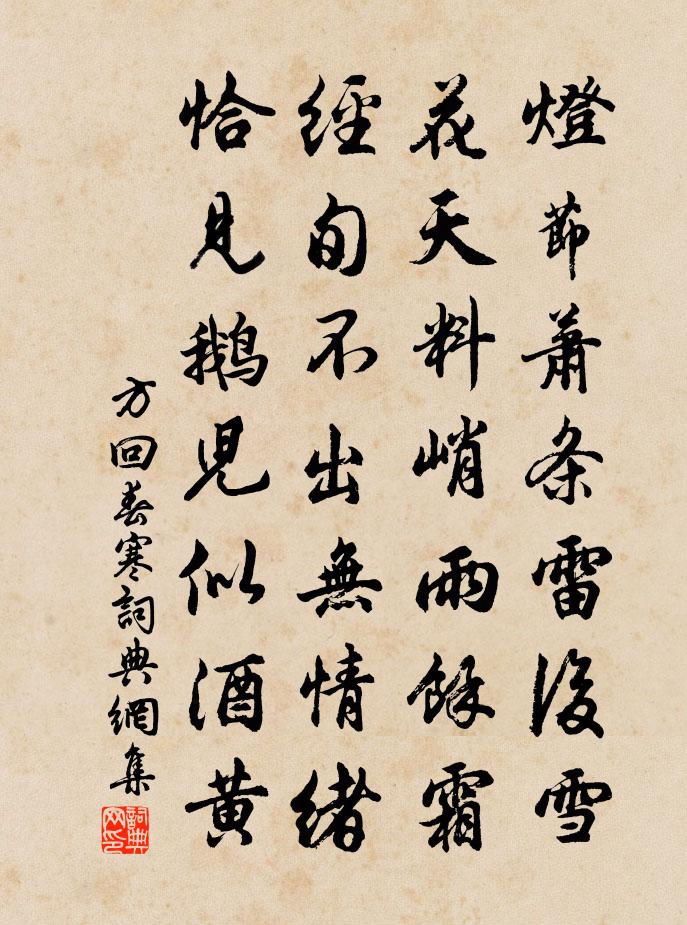 燈節蕭条雷後雪
花天料峭雨餘霜
經旬不出無情緒
恰見鵝児似酒黄
方回春寒詞典網集
詞典网印